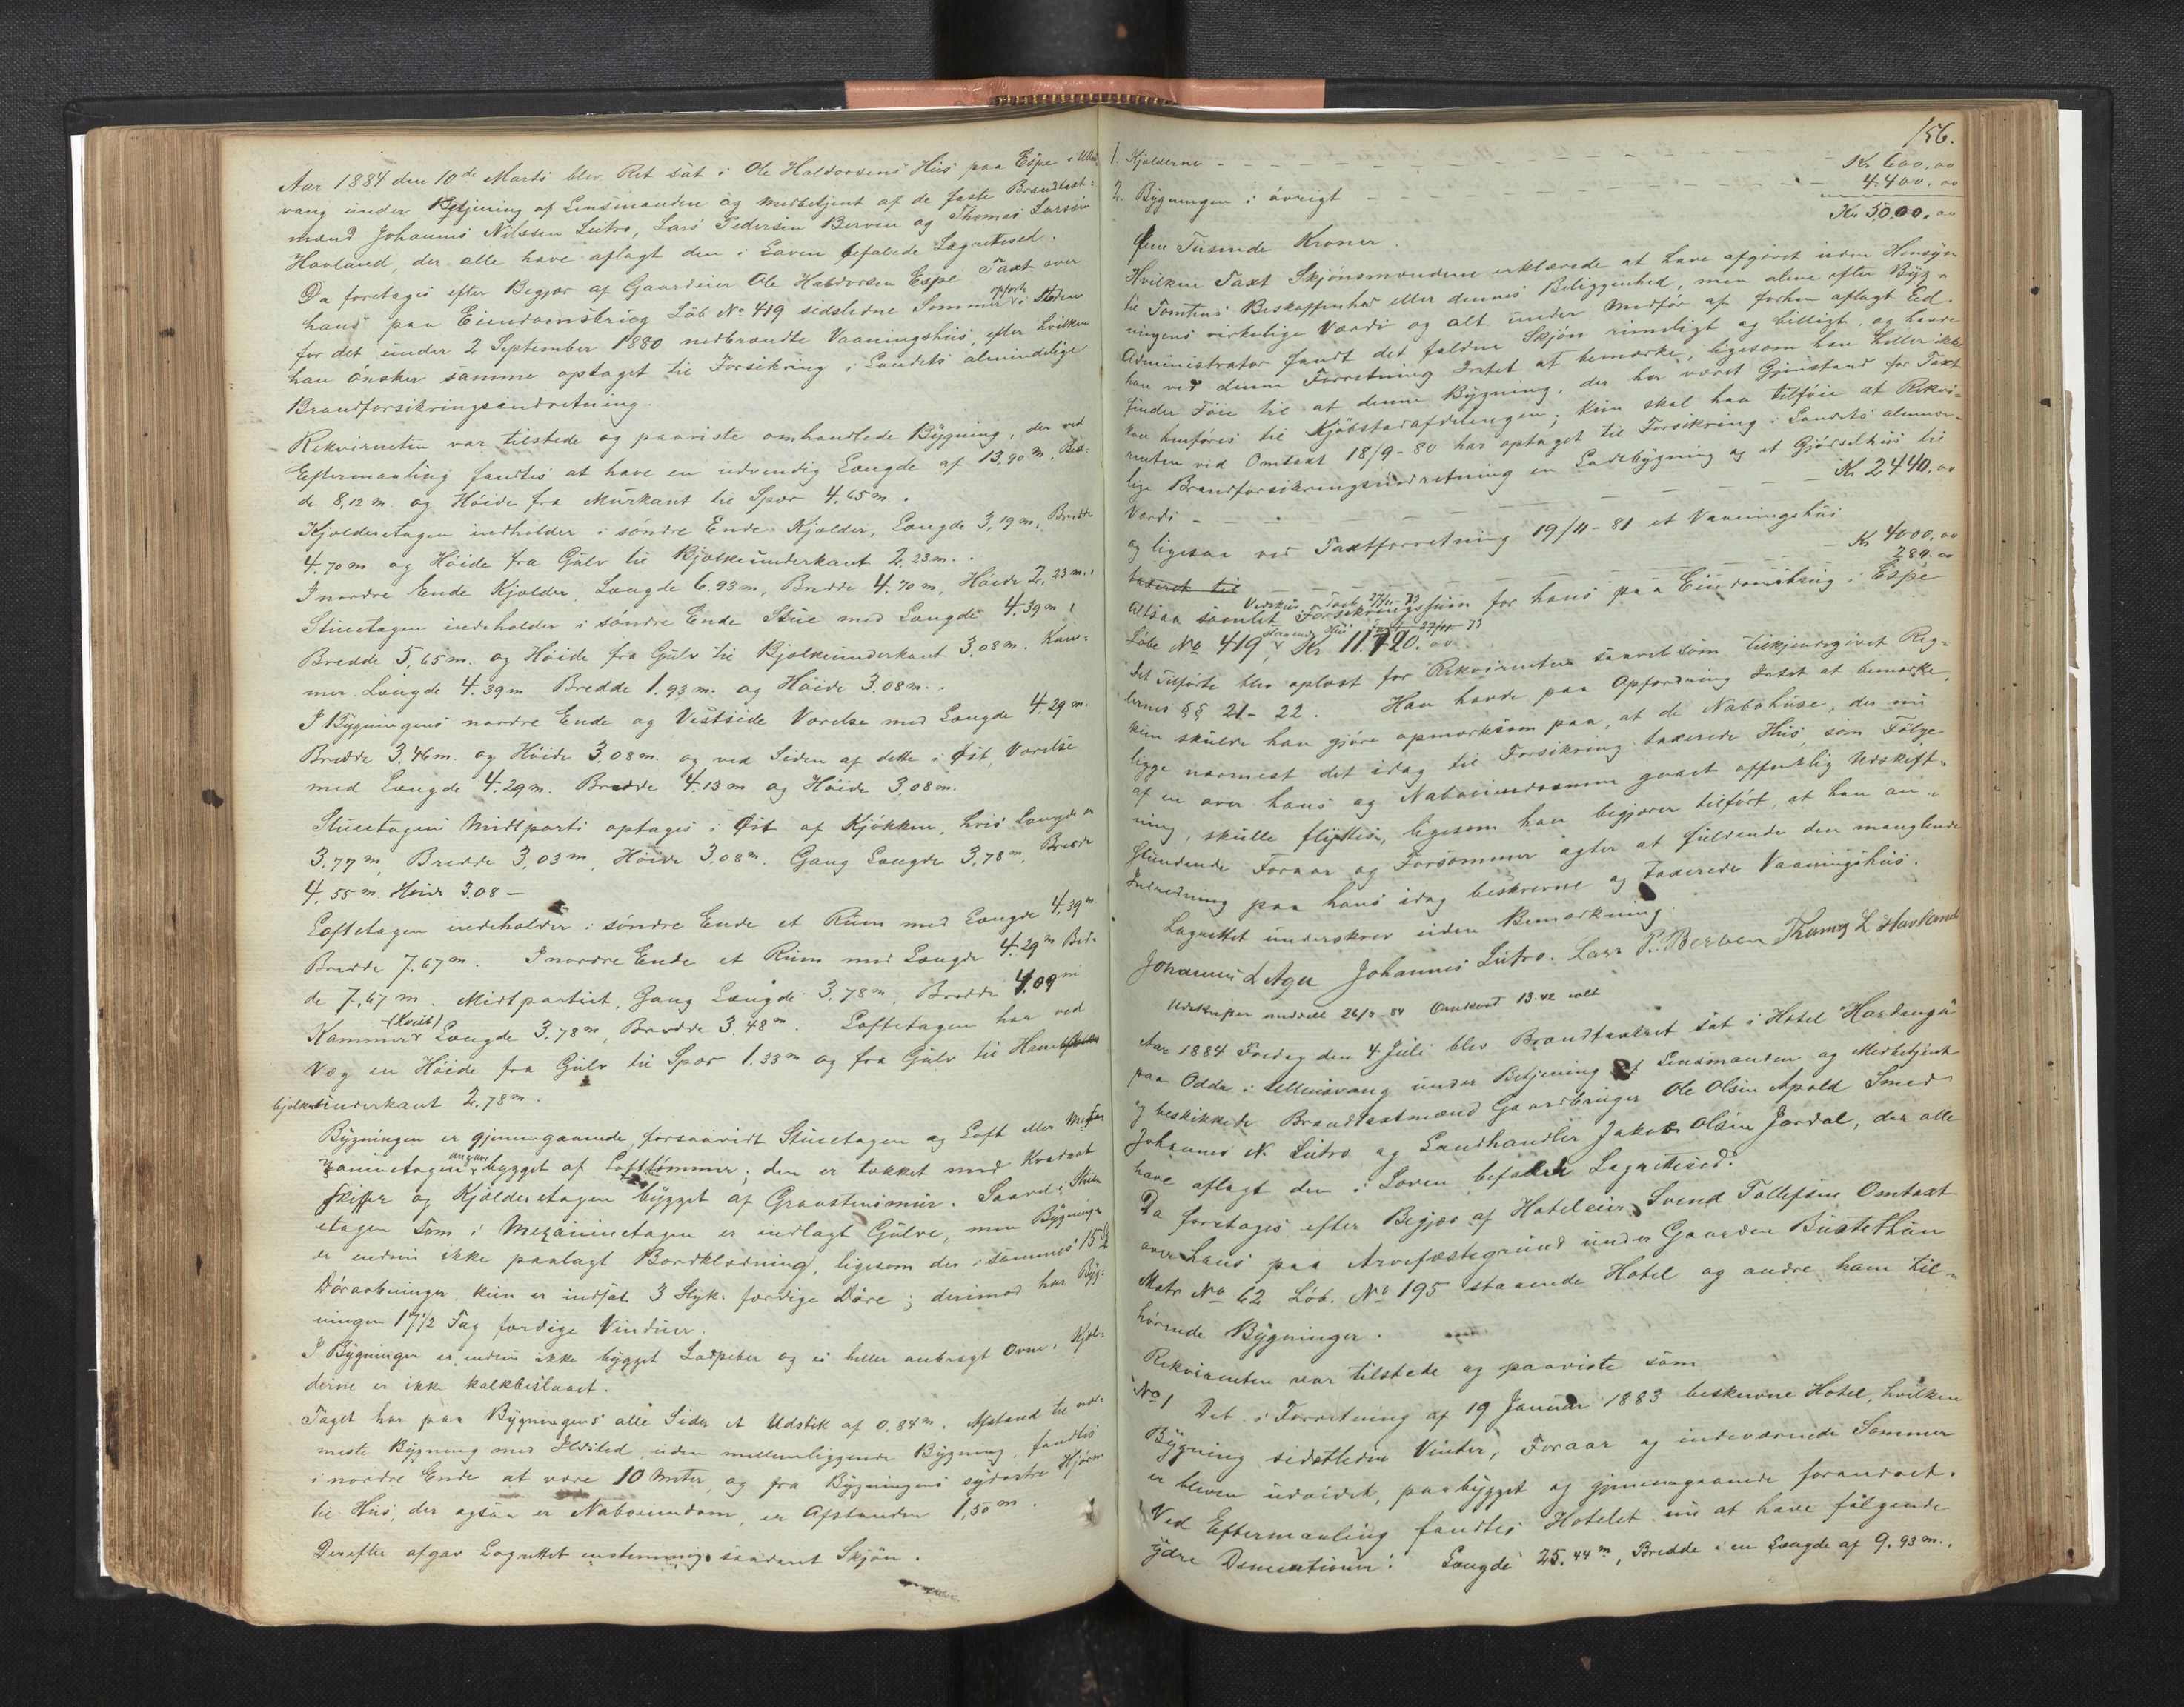 Aar 1884 den 10de Marts blev Ret sat i Ole Haldorsens Hus paa Espe i Ullens-
vang under Betjening af Lensmanden og medbetjent af de faste Brandtaxt-
mænd Johannes Nilssen Lutro, Lars Pedersen Berven og Thomas Larsen
Hovland, der alle have aflagt den i Loven befalede Lagrettesed.
Da foretages efter Begjær af Gaardeier Ole Haldorsen Espe Taxt over
hans paa Eiendomsbrug Løb No 419 sidstledne Sommer opførte i Steden
for det under 2 September 1880 nedbrændte Vaaningshus, efter hvilken
han ønsker samme optaget til Forsikring i Landets almindelige
Brandforsikringsindretning.
Rekvirenten var tilstede og paaviste omhandlede Bygning, der ved
Eftermaaling fandtes at have en udvendig Længde af 13,90 m, Bred-
de 8,12 m og Høide fra Murkant til Spær 4,65 m.
Kjelderetagen indholder i søndre Ende Kjelder, Længde 3,19 m, Bredde
4,70 m og Høide fra Gulv til Bjelkeunderkant 2,23 m.
I nordre Ende Kjelder, Længde 6,93 m, Bredde 4,70 m, Høide 2,23 m.
Stueetagen indeholder i søndre Ende Stue med Længde 4,39 m,
Bredde 5,65 m. og Høide fra Gulv til Bjelkeunderkant 3,08 m. Kam-
mer Længde 4,39 m Bredde 1,93 m. og Høide 3,08 m.
I Bygningens nordre Ende og Vestside Værelse med Længde 4,29 m.
Bredde 3,46 m. og Høide 3,08 m. og ved Siden af dette i Øst, Værelse
med Længde 4,29 m. Bredde 4,13 m og Høide 3,08 m.
Stueetagens Midtparti optages i Øst af Kjøkken, hvis Længde er
3,77 m, Bredde 3,03 m, Høide 3,08 m. Gang Længde 3,78 m, Bredde
4,55 m. Høide 3,08 –
Loftetagen indeholder i søndre Ende et Rum med Længde 4,39 m
Bredde 7,67 m. I nordre Ende et Rum med Længde 4,29 m Bred-
de 7,67 m. Midtpartiet, Gang Længde 3,78 m, Bredde 4,09 m
Kammer (Kvist) Længde 3,78 m, Bredde 3,48 m. Loftetagen har ved
Væg en Høide fra Gulv til Spær 1,33 m og fra Gulv til Hane-
bjelkeunderkant 2,78 m.
Bygningen er gjennemgaaende, forsaavidt Stueetagen og Loft eller Mez-
zaninetagen angaar bygget af Lofttømmer; den er tækket med Kvadrat
Skifer og Kjelderetagen bygget af Graastensmur. Saavel i Stue-
etagen som i Mezaninetagen er indlagt Gulve, men Bygningen
er endnu ikke paalagt Bordklædning, ligesom der i sammes 15
Døraabninger kun er indsat 3 Styk. færdige Døre; derimod har Byg-
ningen 17 1/2 Fag færdige Vinduer.
I Bygningen er endnu ikke bygget Ladpiber og ei heller anbragt Ovne. Kjel-
derne er ikke kalkbeslaaet.
Taget har paa Bygningens alle Sider et Udstik af 0,84 m. Afstand til nær-
meste Bygning med Ildsted uden mellemliggende Bygning, fandtes
i nordre Ende at være 10 Meter og fra Bygningens sydøstre Hjørne
til Hus, der ogsaa er Naboeiendom, er Afstanden 1,50 m.
Derefter afgav Lagrettet enstemmigt saadant Skjøn.
156.
1. Kjelderne – – – – – Kr. 600,00
2. Bygningen i øvrigt – – – – – 4400,00
Kr. 5000,00
Fem Tusinde Kroner.
Hvilken Taxt Skjønsmændene erklærede at have afgivet uden Hensyn
til Tomtens Beskaffenhed eller dennes Beliggenhed, men alene efter Byg-
ningens virkelige Værdi og alt under Medfør af forhen aflagt Eed.
Administrator fandt det faldne Skjøn rimeligt og billigt, og havde
han ved denne Forretning Intet at bemærke, ligesom han heller ikke
finder Føie til at denne Bygning, der har været Gjenstand for Taxt
kan henføres til Kjøbstadafdelingen; kun skal han tilføie at Rekvi-
renten ved Omtaxt 18/9-80 har optaget til Forsikring i Landets alminde-
lige Brandforsikringsindretning en Ladebygning og et Gjødselhus til
Værdi – – – – – Kr 2440,00
og ligesaa ved Taxtforretning 19/11-81 et Vaaningshus
taxeret til – – – – – Kr 4000,00
280,00
Vedskur Taxt 27/11-73
altsaa samlet Forsikringssum for hans paa Eiendomsbrug i Espe
Løbe No 419, Kr 11.720.00
Det Tilførte blev oplæst for Rekvirenten saavel som tilkjendegivet Reg-
lernes §§ 21-22. Han havde paa Opfordring Intet at bemærke,
kun skulde han gjøre opmærksom paa, at de Nabohuse, der nu
ligge nærmest det idag til Forsikring taxerede Hus, som Følge
af en over hans og Naboeiendomme gaaet offentlig Udskift-
ning, skulle flyttes, ligesom han begjærer tilført, at han an-
stundende Foraar og Forsommer agter at fuldende den manglende
Indredning paa hans idag beskrevne og taxerede Vaaningshus.
Lagrettet underskrev uden Bemærkning.
Johannes L Aga Johannes Lutro. Lars P. Berven Thomas L Hovland
Udskrifter meddelt 26/3-84 Omkost 13.42 ialt
Aar 1884 Fredag den 4 Juli blev Brandtaxtret sat i Hotel "Hardanger"
paa Odda i Ullensvang under Betjening af Lensmanden og Medbetjent
og beskikkede Brandtaxtmænd Gaardbruger Ole Olsen Apold Smed
Johannes N. Lutro og Landhandler Jakob Olsen Jordal, der alle
have aflagt den i Loven befalede Lagrettesed.
Da foretages efter Begjær af Hoteleier Svend Tollefsen Omtaxt
over hans paa Arvefæstegrund under Gaarden Bustethun
Matr No 62 Løb. No 195 staaende Hotel og andre ham til-
hørende Bygninger.
Rekvirenten var tilstede og paaviste som
No 1 Det i Forretning af 19 Januar 1883 beskrevne Hotel, hvilken
Bygning sidstledne Vinter, Foraar og indeværende Sommer
er bleven udvidet, paabygget og gjennemgaaende forandret.
Ved Eftermaaling fandtes Hotelet nu at have følgende
ydre Demensioner: Længde 25,44 m, Bredde i en Længde af 9,93 m.,